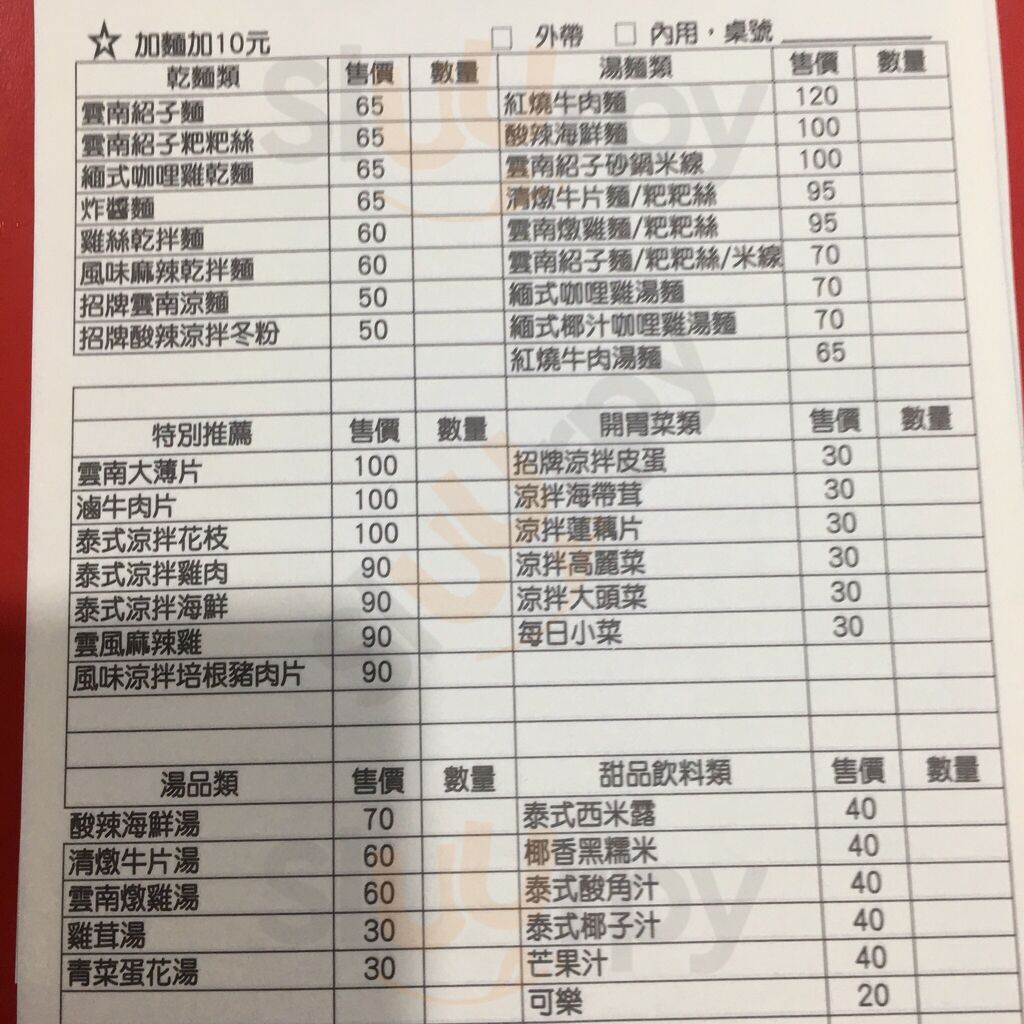 ☆ 加麵加10元 □ 外帶 □ 內用，桌號
乾麵類 售價 數量 湯麵類 售價 數量
雲南紹子麵 65 紅燒牛肉麵 120
雲南紹子粑粑絲 65 酸辣海鮮麵 100
緬式咖哩雞乾麵 65 雲南紹子砂鍋米線 100
炸醬麵 65 清燉牛片麵/粑粑絲 95
雞絲乾拌麵 60 雲南燉雞麵/粑粑絲 95
風味麻辣乾拌麵 60 雲南紹子麵/粑粑絲/米線 70
招牌雲南涼麵 50 緬式咖哩雞湯麵 70
招牌酸辣涼拌冬粉 50 緬式椰汁咖哩雞湯麵 70
紅燒牛肉湯麵 65
特別推薦 售價 數量 開胃菜類 售價 數量
雲南大薄片 100 招牌涼拌皮蛋 30
滷牛肉片 100 涼拌海帶茸 30
泰式涼拌花枝 100 涼拌蓮藕片 30
泰式涼拌雞肉 90 涼拌高麗菜 30
泰式涼拌海鮮 90 涼拌大頭菜 30
雲風麻辣雞 90 每日小菜 30
風味涼拌培根豬肉片 90
湯品類 售價 數量 甜品飲料類 售價 數量
酸辣海鮮湯 70 泰式西米露 40
清燉牛片湯 60 椰香黑糯米 40
雲南燉雞湯 60 泰式酸角汁 40
雞茸湯 30 泰式椰子汁 40
青菜蛋花湯 30 芒果汁 40
可樂 20
slurpy
slurpy
slurpy